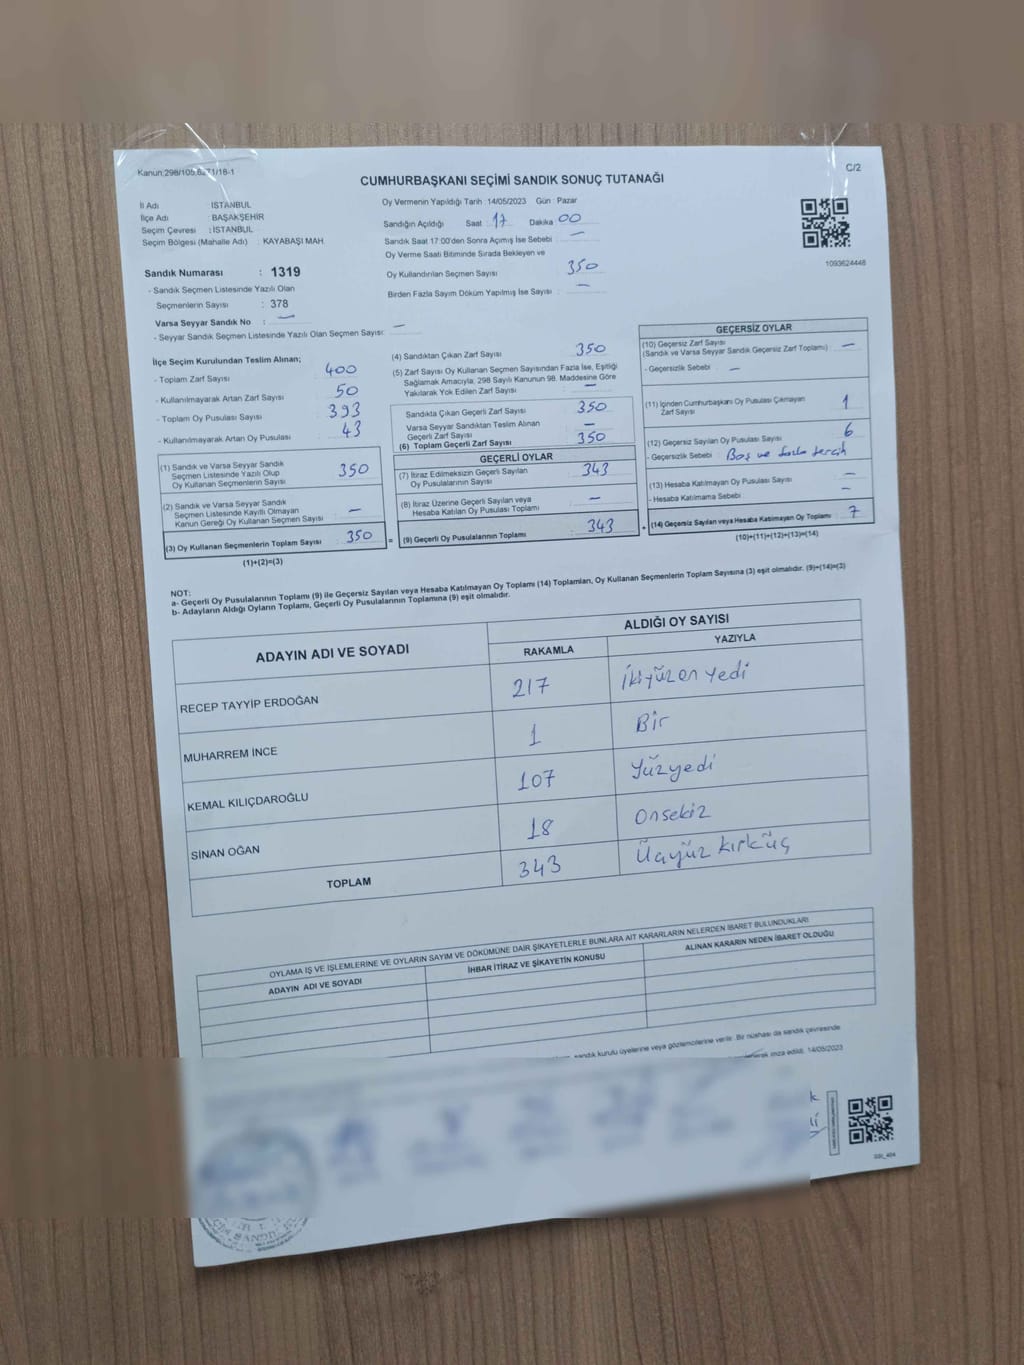 Kanun:298/105,8271/18-1
C/2
CUMHURBAŞKANI SEÇİMİ SANDIK SONUÇ TUTANAĞI
İl Adı : İSTANBUL
İlçe Adı : BAŞAKŞEHİR
Seçim Çevresi : İSTANBUL
Seçim Bölgesi (Mahalle Adı) : KAYABAŞI MAH.
Sandık Numarası : 1319
- Sandık Seçmen Listesinde Yazılı Olan
Seçmenlerin Sayısı : 378
Varsa Seyyar Sandık No : —
- Seyyar Sandık Seçmen Listesinde Yazılı Olan Seçmen Sayısı: —
Oy Vermenin Yapıldığı Tarih :14/05/2023 Gün : Pazar
Sandığın Açıldığı Saat : 17 Dakika : 00
Sandık Saat 17:00'den Sonra Açımış İse Sebebi : —
Oy Verme Saati Bitiminde Sırada Bekleyen ve
Oy Kullandırılan Seçmen Sayısı : 350
Birden Fazla Sayım Döküm Yapılmış İse Sayısı : —
1093624448
İlçe Seçim Kurulundan Teslim Alınan;
- Toplam Zarf Sayısı : 400
- Kullanılmayarak Artan Zarf Sayısı : 50
- Toplam Oy Pusulası Sayısı : 393
- Kullanılmayarak Artan Oy Pusulası : 43
(1) Sandık ve Varsa Seyyar Sandık
Seçmen Listesinde Yazılı Olup
Oy Kullanan Seçmenlerin Sayısı : 350
(2) Sandık ve Varsa Seyyar Sandık
Seçmen Listesinde Kayıtlı Olmayan
Kanun Gereği Oy Kullanan Seçmen Sayısı : —
(3) Oy Kullanan Seçmenlerin Toplam Sayısı : 350
(1)+(2)=(3)
=
(4) Sandıktan Çıkan Zarf Sayısı : 350
(5) Zarf Sayısı Oy Kullanan Seçmen Sayısından Fazla İse, Eşitliği
Sağlamak Amacıyla, 298 Sayılı Kanunun 98. Maddesine Göre
Yakılarak Yok Edilen Zarf Sayısı : —
Sandıkta Çıkan Geçerli Zarf Sayısı : 350
Varsa Seyyar Sandıktan Teslim Alınan
Geçerli Zarf Sayısı : —
(6) Toplam Geçerli Zarf Sayısı : 350
GEÇERLİ OYLAR
(7) İtiraz Edilmeksizin Geçerli Sayılan
Oy Pusulalarının Sayısı : 343
(8) İtiraz Üzerine Geçerli Sayılan veya
Hesaba Katılan Oy Pusulası Toplamı : —
(9) Geçerli Oy Pusulalarının Toplamı : 343
+
GEÇERSİZ OYLAR
(10) Geçersiz Zarf Sayısı
(Sandık ve Varsa Seyyar Sandık Geçersiz Zarf Toplamı) : —
- Geçersizlik Sebebi : —
(11) İçinden Cumhurbaşkanı Oy Pusulası Çıkmayan
Zarf Sayısı : 1
(12) Geçersiz Sayılan Oy Pusulası Sayısı : 6
- Geçersizlik Sebebi : Boş ve fazla tercih
(13) Hesaba Katılmayan Oy Pusulası Sayısı : —
- Hesaba Katılmama Sebebi : —
(14) Geçersiz Sayılan veya Hesaba Katılmayan Oy Toplamı : 7
(10)+(11)+(12)+(13)=(14)
NOT:
a- Geçerli Oy Pusulalarının Toplamı (9) ile Geçersiz Sayılan veya Hesaba Katılmayan Oy Toplamı (14) Toplamları, Oy Kullanan Seçmenlerin Toplam Sayısına (3) eşit olmalıdır. (9)+(14)=(3)
b- Adayların Aldığı Oyların Toplamı, Geçerli Oy Pusulalarının Toplamına (9) eşit olmalıdır.
ADAYIN ADI VE SOYADI
ALDIĞI OY SAYISI
RAKAMLA YAZIYLA
RECEP TAYYİP ERDOĞAN 217 İkiyüzon yedi
MUHARREM İNCE 1 Bir
KEMAL KILIÇDAROĞLU 107 Yüzyedi
SİNAN OĞAN 18 Onsekiz
TOPLAM 343 Üçyüz kırküç
OYLAMA İŞ VE İŞLEMLERİNE VE OYLARIN SAYIM VE DÖKÜMÜNE DAİR ŞİKAYETLERLE BUNLARA AİT KARARLARIN NELERDEN İBARET BULUNDUKLARI
ADAYIN ADI VE SOYADI İHBAR İTİRAZ VE ŞİKAYETİN KONUSU ALINAN KARARIN NEDEN İBARET OLDUĞU
sandık kurulu üyelerine veya gözlemcilerine verilir. Bir nüshası da sandık çevresinde
imza edildi. 14/05/2023